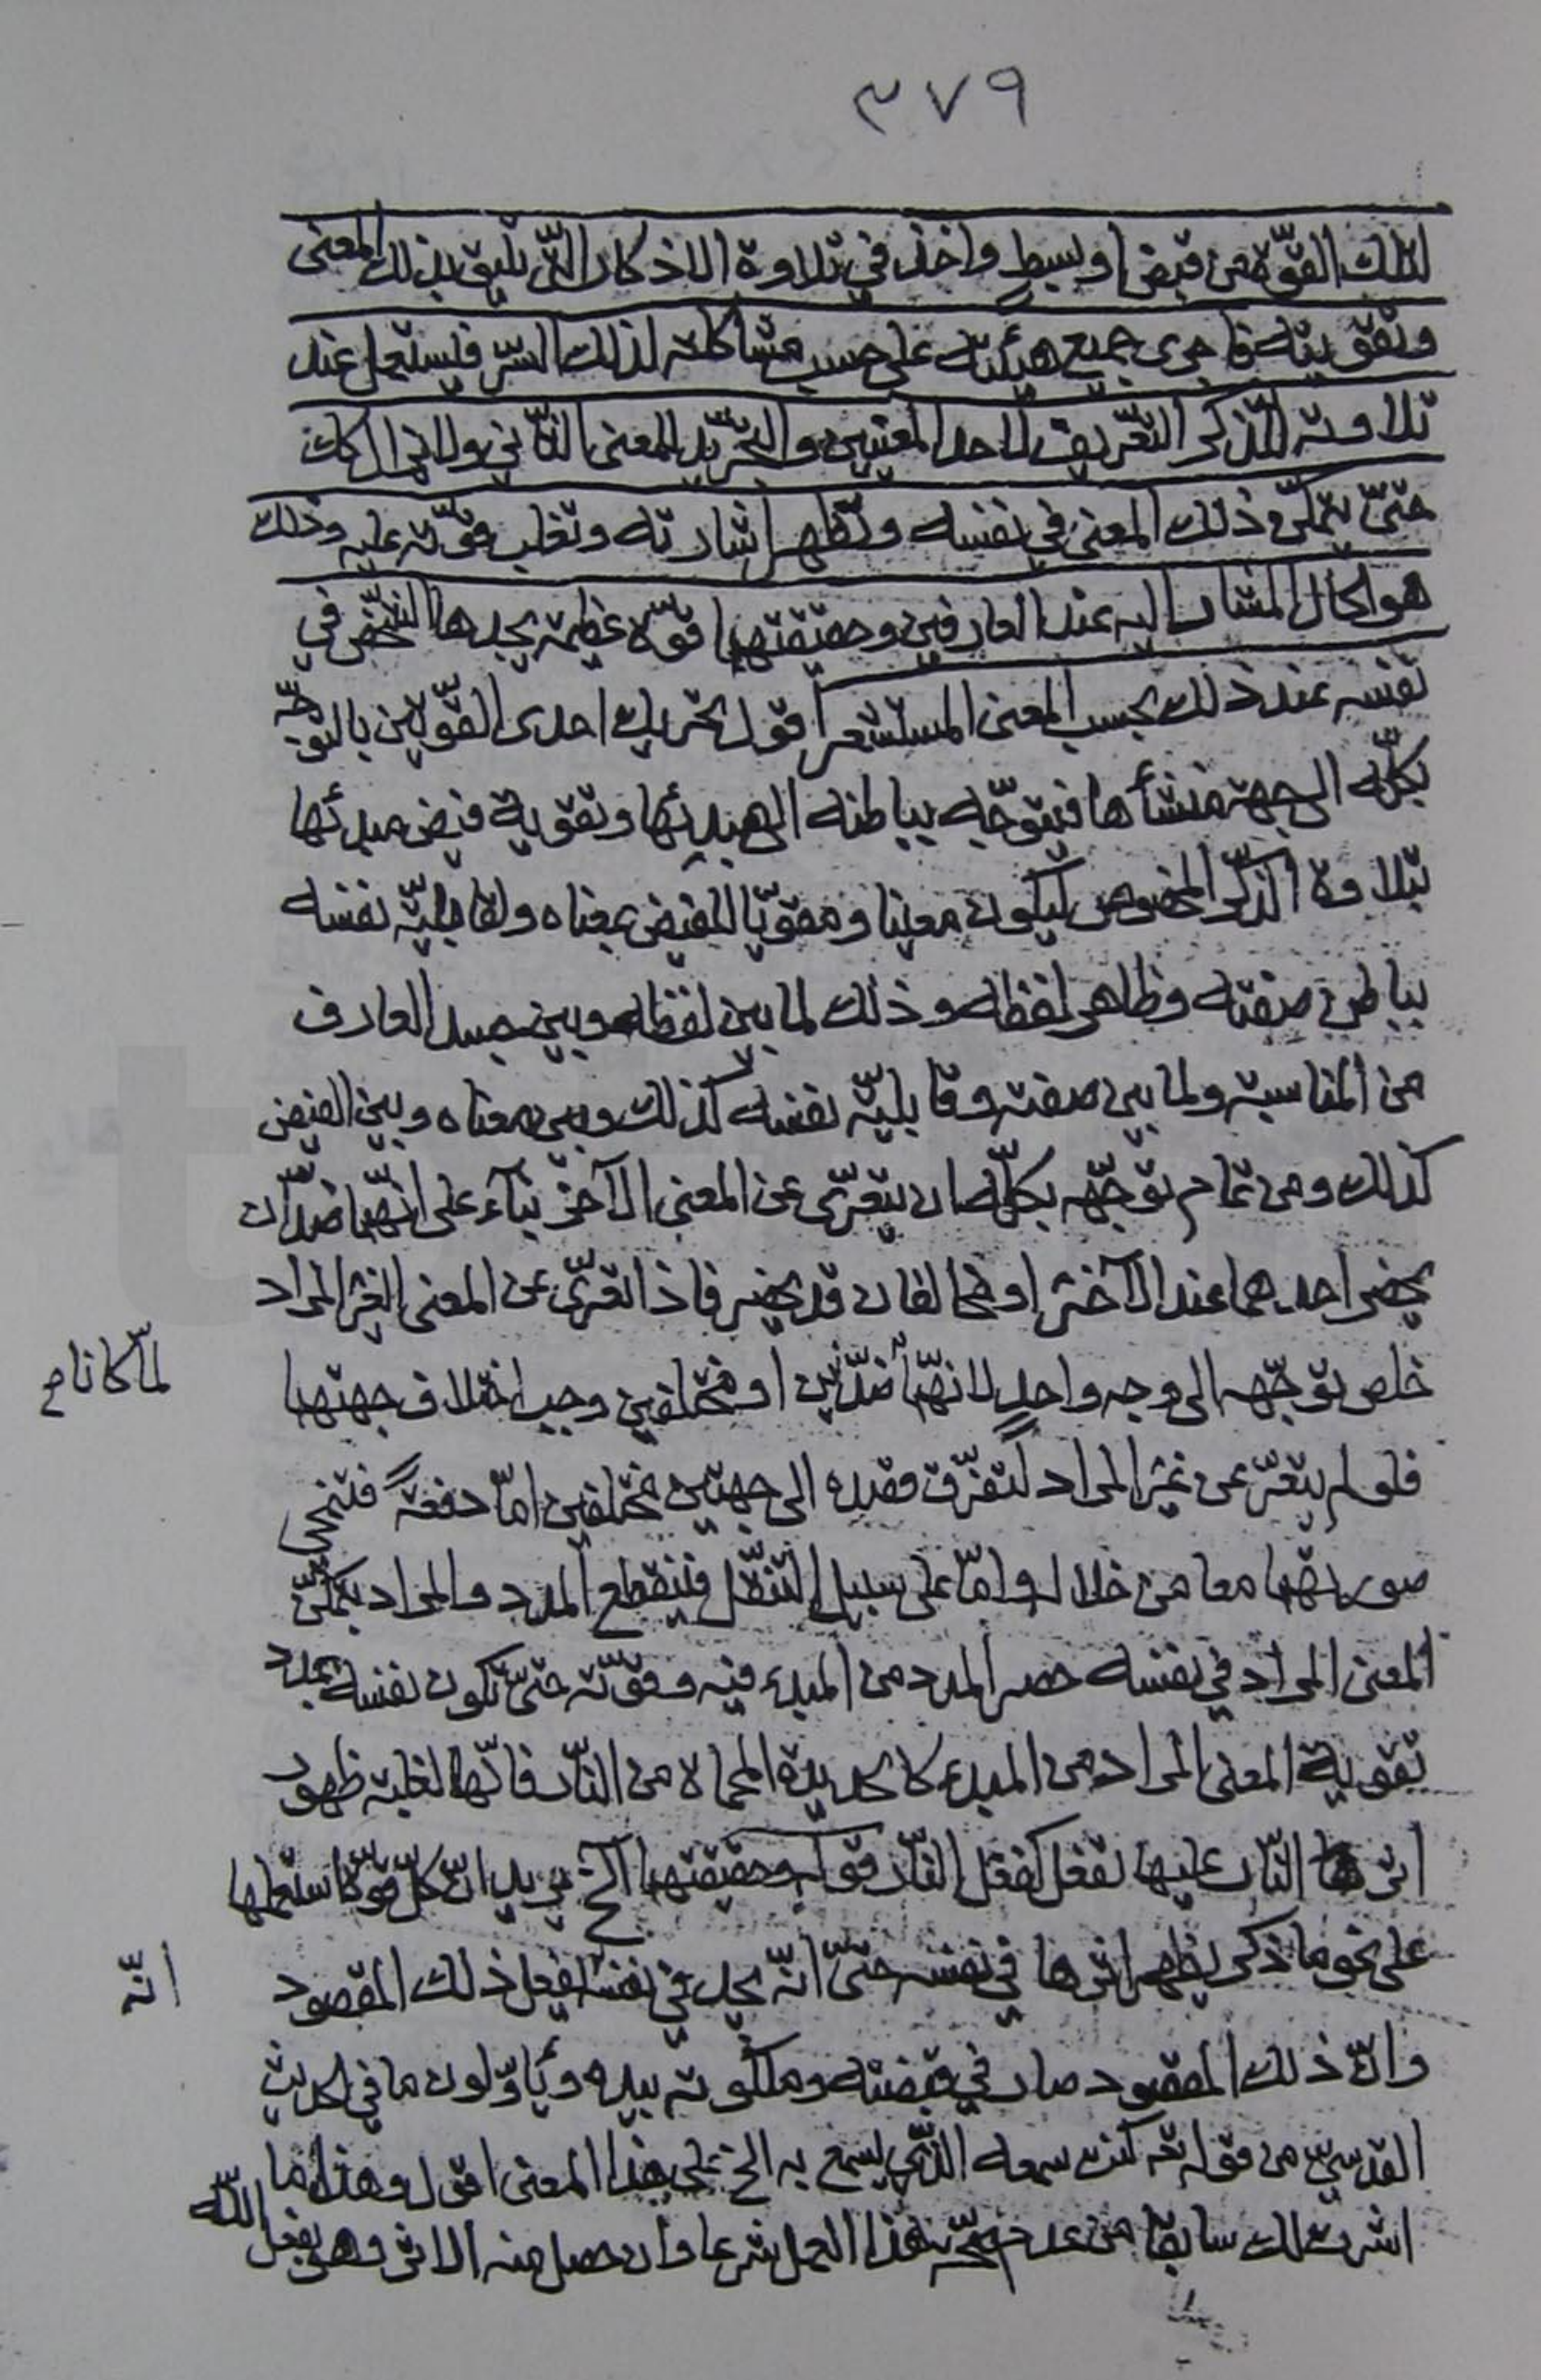 ٣٧٩
لتلك القوّة من قبض او بسطٍ واخذ في تلاوة الاذكار الّتي تليق بذلك المعنى
وتقويته فاجرى جميع هيئته على حسب مشاكلته لذلك السّر فيستعمل عند
تلاوته الذّكر التعريف لاحد المعنيين والتجريد للمعنى الثّاني ولا يزال كذلك
حتّى يتمكّن ذلك المعنى في نفسه وتظهر اشارته وتغلب قوّته عليه وذلك
هو الحال المشار اليه عند العارفين وحقيقتها قوّة عظيمة يجدها الشّخص في
نفسه عند ذلك بحسب المعنى المستشعر اقول تحريك احدى القوّتين بالتوجّه
بكلّه الى جهة منشأها فيتوجّه بباطنه الى مبدئها وتقوية فيض مبدئها
بتلاوة الذّكر المخصوص ليكون معينا ومقوّيا للفيض بمعناه ولقابليّة نفسه
بباطن صفته وظاهر لفظه وذلك لما بين لفظه وبين جسد العارف
من المناسبة ولما بين صفته وقابليّة نفسه كذلك وبين معناه وبين الفيض
كذلك ومن تمام توجّهه بكلّه ان يتعرّى عن المعنى الآخر بناء على انهما ضدّان
يحضر احدهما عند الآخر او مخالفان قد يحضر فاذا تعرّى عن المعنى الغير المراد
خلص توجّهه الى وجه واحدٍ لانهما ضدّين او مختلفين وجب اختلاف جهتهما
لمّا كانا م
فلو لم يتعرّ عن غير المراد لتفرّق قصده الى جهتين مختلفين امّا دفعةً فتنمحي
صورتهما معا من خلاله وامّا على سبيل التنقّل فينقطع المدد والمراد بتمكّن
المعنى المراد في نفسه حصر المدد من المبدء فيه وقوّته حتّى تكون نفسه بمدد
تقوية المعنى المراد من المبدء كالحديدة المحماة من النّار فانّها لغلبة ظهور
اثر النّار عليها تفعل كفعل النّار قوله وحقيقتها الخ يريد انّ كلّ قوّة استعملها
على نحو ما ذكر يظهر اثرها في نفسه حتّى انّه يجد في نفسه يفعل ذلك المقصود
انّه
وانّ ذلك المقصود صار في قبضته وملكوته بيده ويأوّلون ما في الحديث
القدسيّ من قوله تع كنت سمعه الّذي يسمع به الخ على هذا المعنى اقول وهذا ما
اشرت لك سابقا من عدم صحّة هذا العمل شرعا وان حصل منه الاثر وهو بفعل اللّه